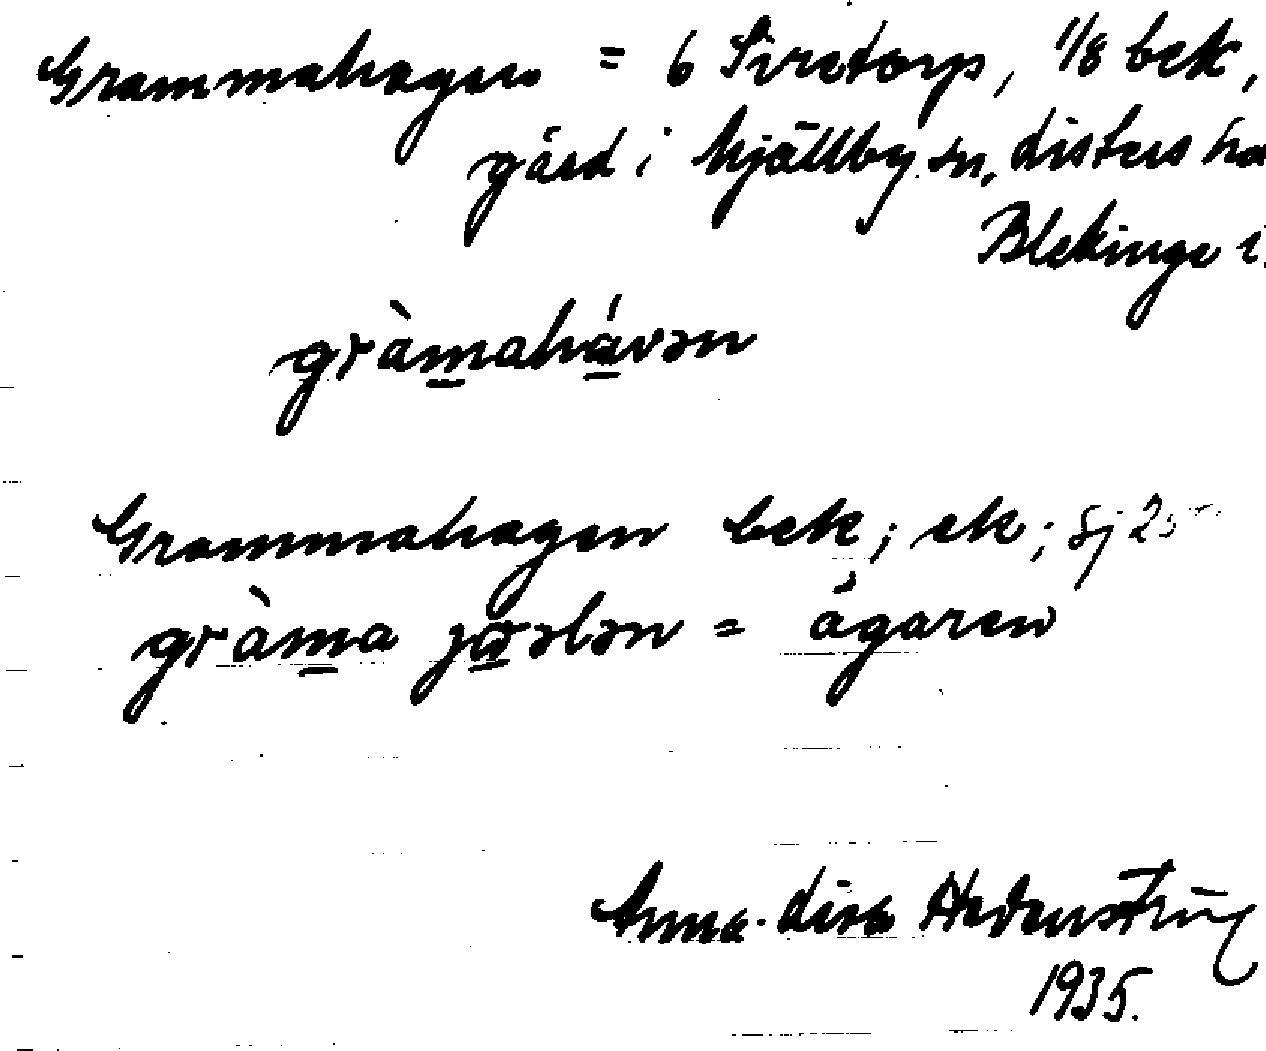 Grammahagen = 6 Siretorp, 1/8 bek,
gård i Mjällby sn, Listers hd
Blekinge l.
gràmahávən
Grammahagen bek; ek; Gj 250
gràma jøələn = ägaren
Anna-Lisa Hedenström
1935.